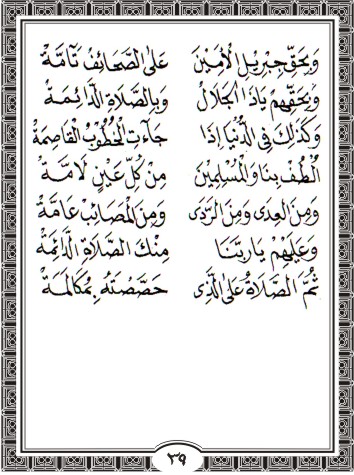 وَبِحَقِّ جِبْرِيْلَ الْأَمِيْنَ عَلَى الصَّحَائِفُ تَآمَّةْ
وَبِحَقِّهِمْ يَاذَا الْجَلَالْ وَبِالصَّلَاةِ الدَّائِمَةْ
وَكَذٰلِكَ فِى الدُّنْيَا إِذَا جَآءَتِ الْخُطُوْبُ الْقَاصِمَةْ
أُلْطُفْ بِنَا وَالْمُسْلِمِيْنَ مِنْ كُلِّ عَيْنٍ لَامَّةْ
وَمِنَ الْعِدَى وَمِنَ الرَّدَى وَمِنَ الْمَصَائِبْ عَامَّةْ
وَعَلَيْهِمْ يَارَبَّنَا مِنْكَ الصَّلَاةِ الدَّائِمَةْ
ثُمَّ الصَّلَاةُ عَلَى الَّذِى خَصَّصْتَهُ بِمُكَالَمَةْ
٣٩